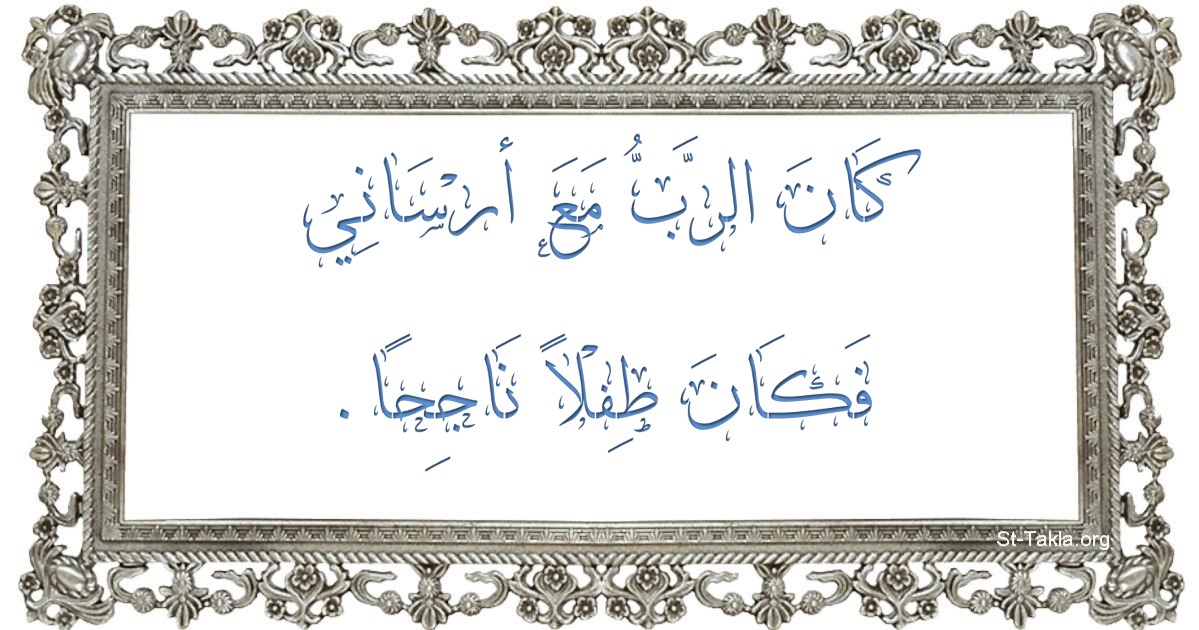 كَانَ الرَّبُّ مَعَ أرْسَانِي
فَكَانَ طِفْلاً نَاجِحًا .
St-Takla.org